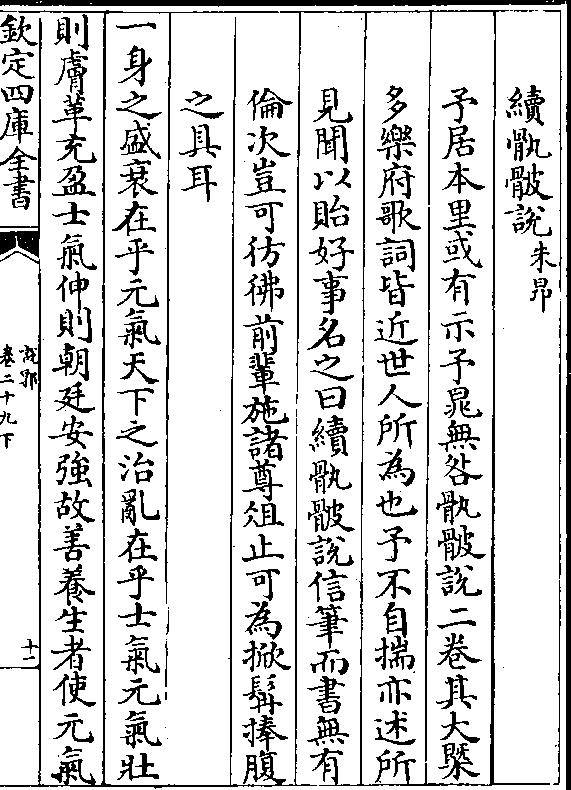 續骩骳說朱昂
予居本里或有示予晁無咎骩骳說二卷其大槩
多樂府歌詞皆近世人所為也予不自揣亦述所
見聞以貽好事名之曰續骩骳說信筆而書無有
倫次豈可彷彿前輩施諸尊俎止可為掀髯捧腹
之具耳
一身之盛衰在乎元氣天下之治亂在乎士氣元氣壯
則膚革充盈士氣伸則朝廷安強故善養生者使元氣
欽定四庫全書
說郛
卷二十九下
十二